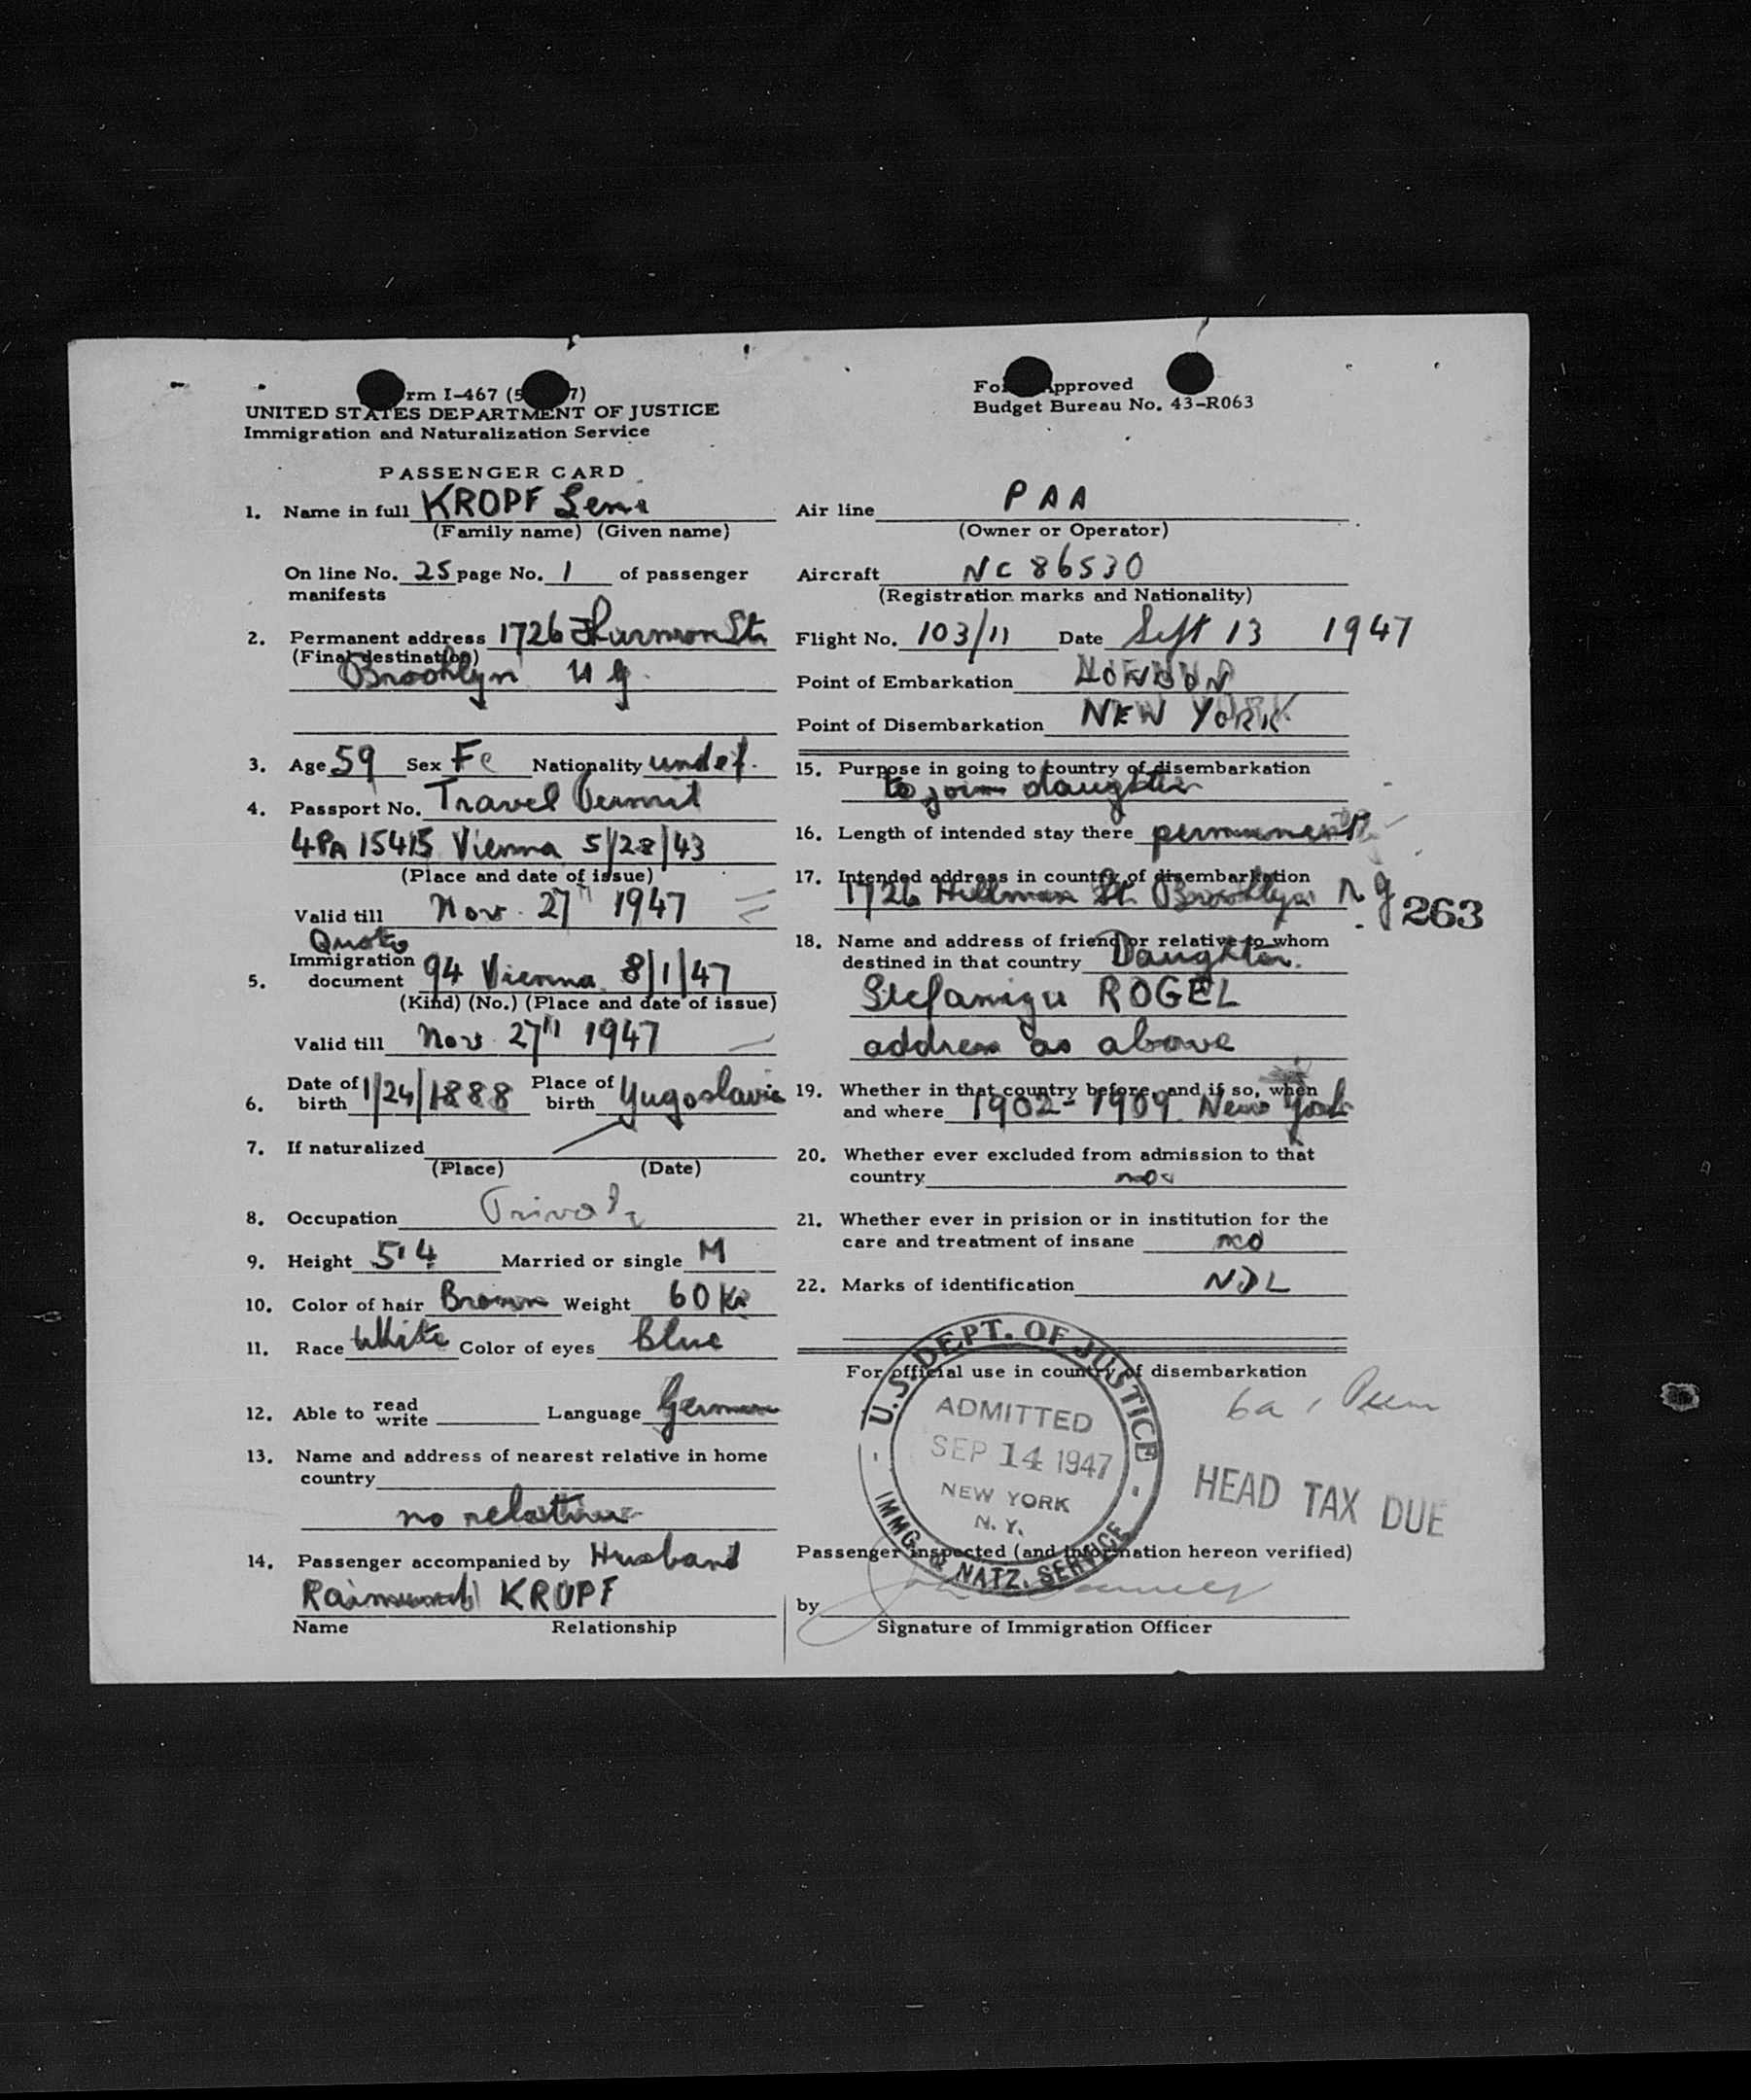 rm I-467 (5 7)
UNITED STATES DEPARTMENT OF JUSTICE
Immigration and Naturalization Service
Fo pproved
Budget Bureau No. 43-R063
PASSENGER CARD
1. Name in full KROPF Lena
(Family name) (Given name)
On line No. 25 page No. 1 of passenger
manifests
2. Permanent address 1726 St.
(Final destination)
Brooklyn
3. Age 59 Sex Fe Nationality undef.
4. Passport No. Travel Permit
15415 Vienna 5/28/43
(Place and date of issue)
Valid till Nov. 27 1947
Quota
Immigration
5. document 94 Vienna 8/1/47
(Kind) (No.) (Place and date of issue)
Valid till Nov 27 1947
6. Date of birth 1/24/1888 Place of birth Yugoslavia
7. If naturalized
(Place) (Date)
8. Occupation
9. Height 5'4 Married or single M
10. Color of hair Brown Weight 60
11. Race White Color of eyes Blue
12. Able to read write Language German
13. Name and address of nearest relative in home
country
no relative
14. Passenger accompanied by Husband
KROPF
Name Relationship
Air line PAA
(Owner or Operator)
Aircraft NC 86530
(Registration marks and Nationality)
Flight No. 103/11 Date Sept 13 1947
Point of Embarkation LONDON
Point of Disembarkation NEW YORK
15. Purpose in going to country of disembarkation
to join daughter
16. Length of intended stay there permanent
17. Intended address in country of disembarkation
1726 St. Brooklyn
263
18. Name and address of friend or relative to whom
destined in that country Daughter.
ROGEL
address as above
19. Whether in that country before, and if so, when
and where 1902-1909 New York
20. Whether ever excluded from admission to that
country no
21. Whether ever in prision or in institution for the
care and treatment of insane no
22. Marks of identification
For official use in country of disembarkation
U.S. DEPT. OF JUSTICE
ADMITTED
SEP 14 1947
NEW YORK
N.Y.
IMMG. & NATZ. SERVICE
HEAD TAX DUE
Passenger inspected (and information hereon verified)
by
Signature of Immigration Officer